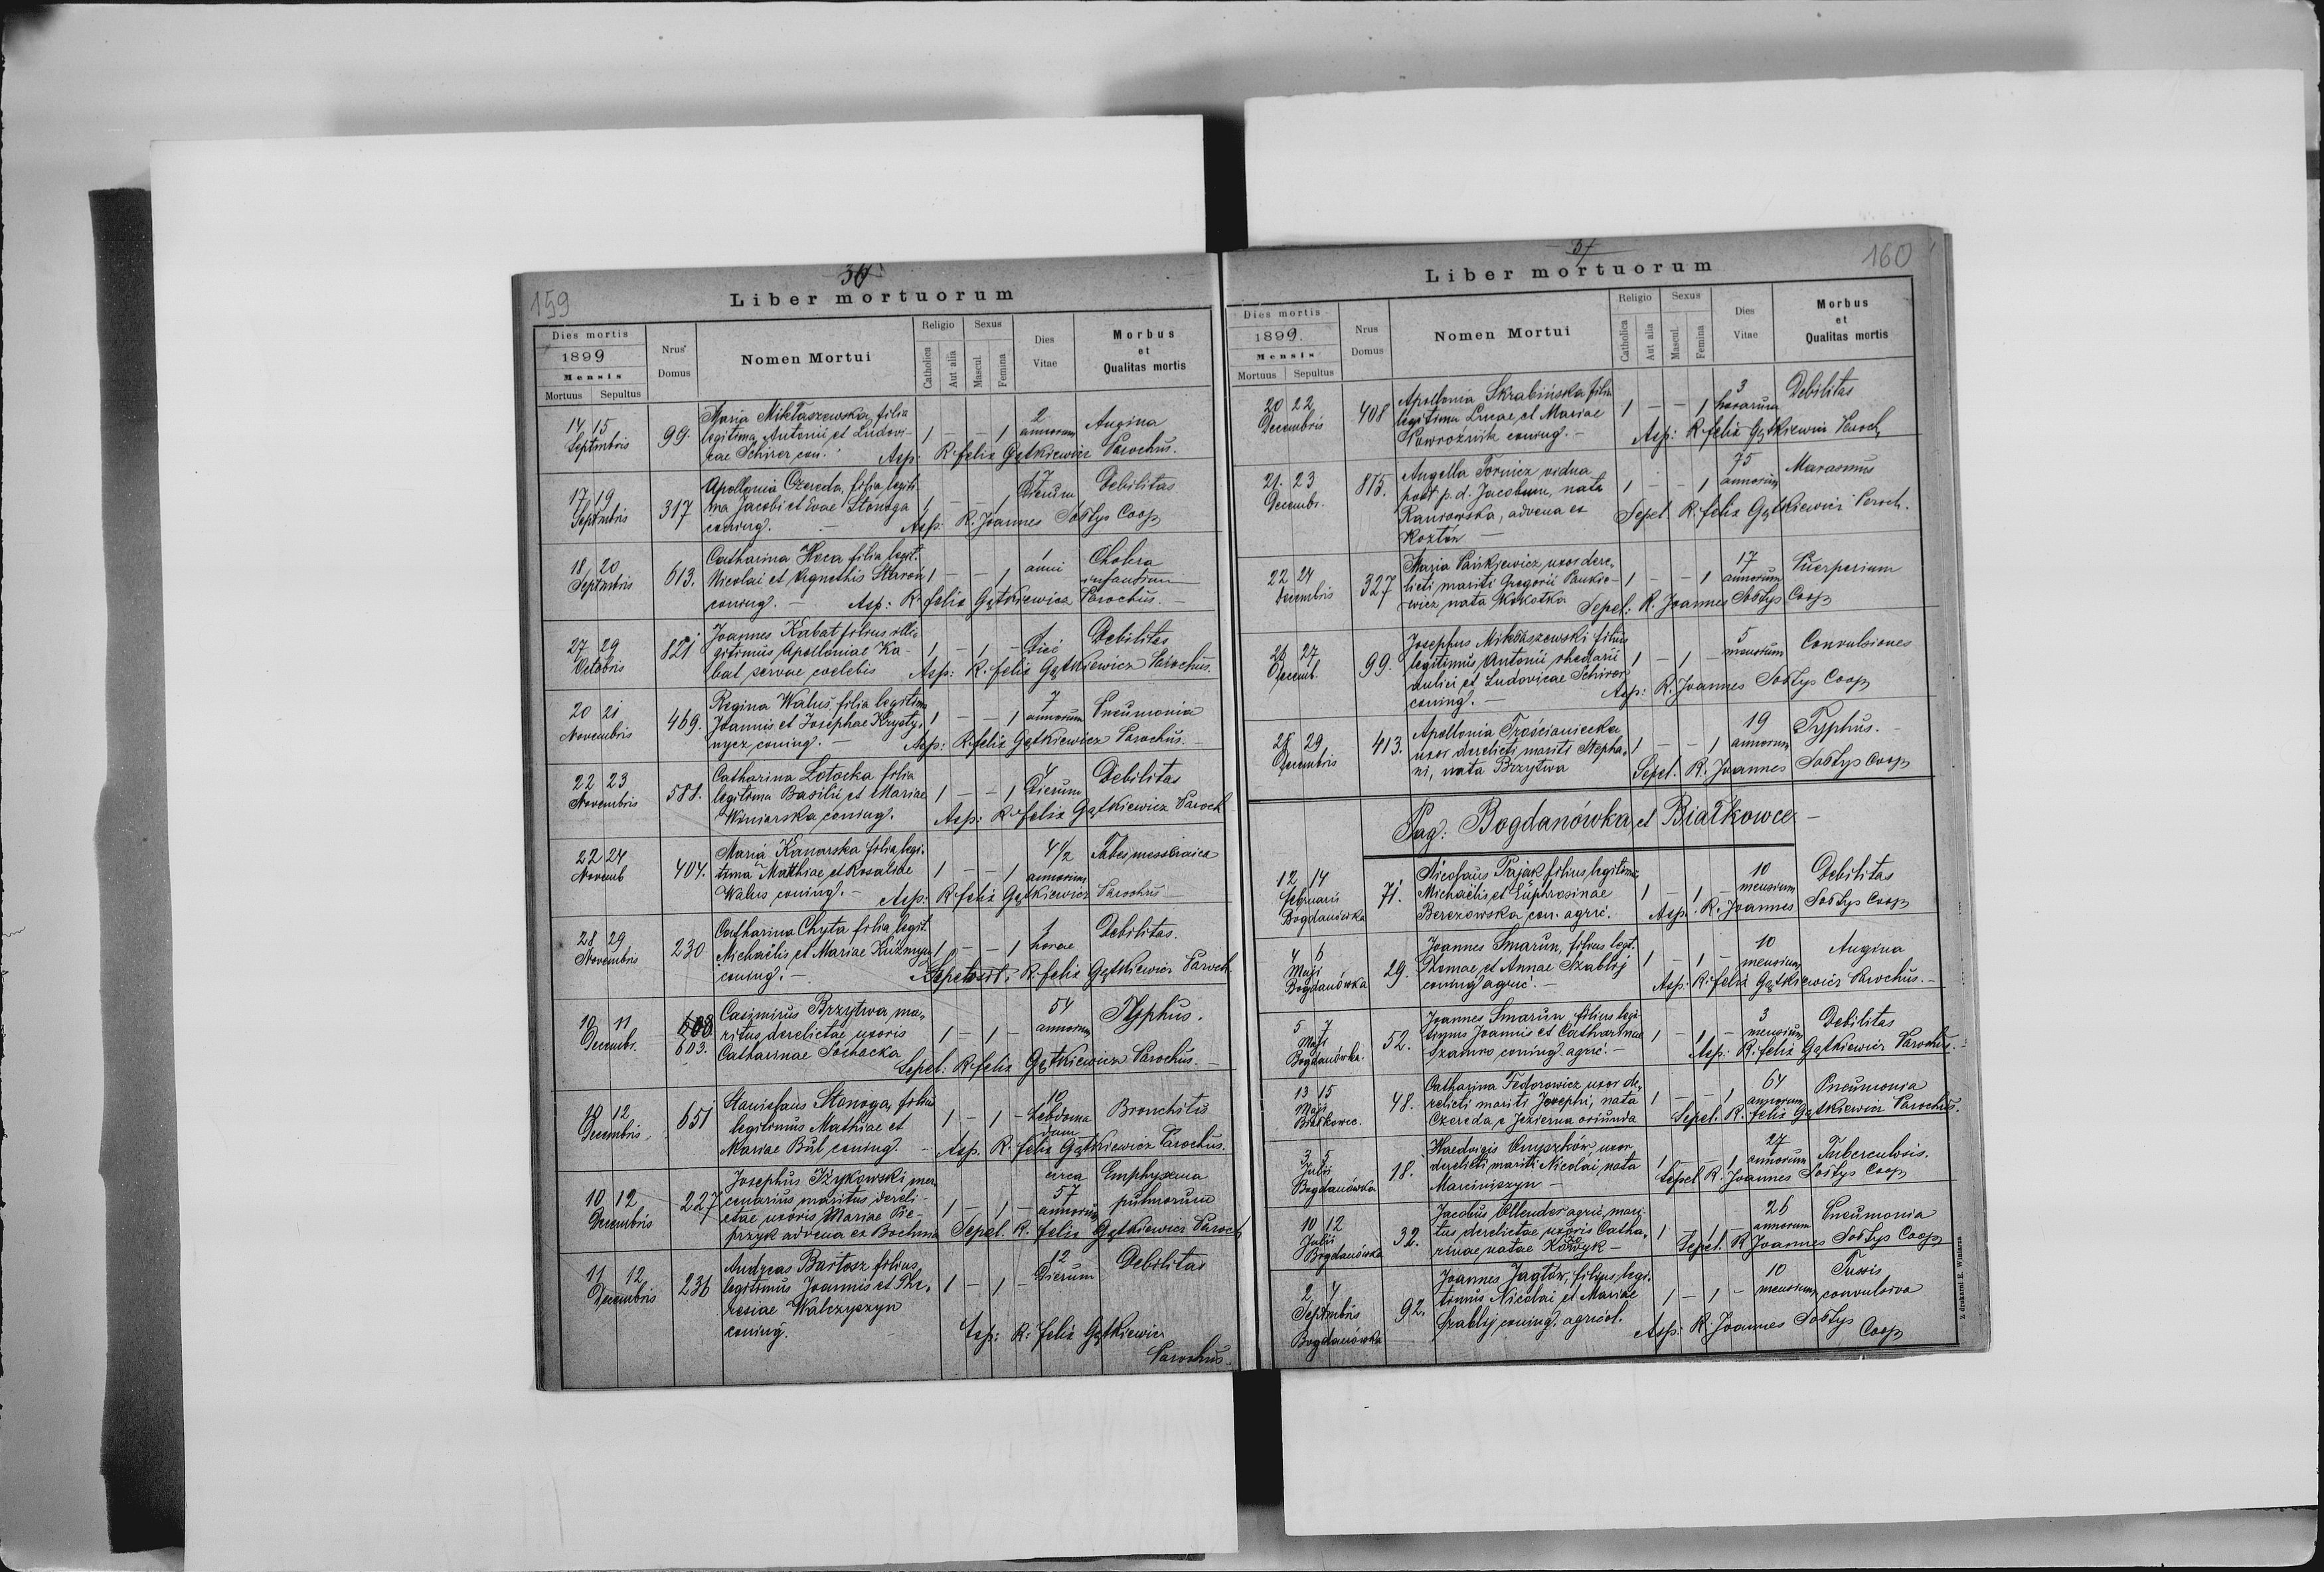 159
36
Liber mortuorum
Dies mortis
1899
Mensis
Mortuus Sepultus
Nrus Domus
Nomen Mortui
Religio
Catholica
Aut alia
Sexus
Mascul.
Femina
Dies Vitae
Morbus et Qualitas mortis
14 15 Septembris 99. Maria Mikłaszewska, filia 2 Angina
legitima Antonii et Ludovi- 1 – – 1 annorum
cae Schirer con. Asp: R. felix Gątkiewicz Parochus.
17 19 Septembris 317 Apollonia Czereda, filia legiti- 17 Debilitas
ma Jacobi et Evae Stonoga 1 – – 1 Dierum
coniug. – Asp: R. Joannes Sołtys Coop
18 20 Septembris 613. Catharina filia legit. 1 Cholera
Nicolai et Agnethis 1 – – 1 anni infantium
coniug. – Asp: R. felix Gątkiewicz Parochus. –
27 29 Octobris 821 Joannes Kabat filius ille- 1 Debilitas
gitimus Apolloniae Ka- 1 – 1 – Diei
bat servae coelebis Asp: R. felix Gątkiewicz Parochus.
20 21 Novembris 469. Regina Waluś, filia legitima 7 Pneumonia
Joannis et Josephae Krysty- 1 – – 1 annorum
nycz coniug. – Asp: R. felix Gątkiewicz Parochus. –
22 23 Novembris 581. Catharina Łotocka filia 4 Debilitas
legitima Basilii et Mariae 1 – – 1 Dierum
Winiarska coniug. Asp: R. felix Gątkiewicz Paroch
22 24 Novemb 404. Maria Kanarska filia legi- 4 1/2 Tabes messeraica
tima Matthiae et Rosaliae 1 – – 1 annorum
Walus coniug. – Asp: R. felix Gątkiewicz Parochus –
28 29 Novembris 230 Catharina Chyta filia legit. 1 Debilitas.
Michaëlis et Mariae 1 – – 1 horae
coniug. – R. felix Gątkiewicz Paroch.
10 11 Decembr. 603. Casimirus Brzytwa, ma- 54 Typhus.
ritus derelictae uxoris 1 – 1 – annorum
Catharinae Sochacka Sepel: R. felix Gątkiewicz Parochus. –
10 12 Decembris 651 Stanislaus Stonoga, filius 10 Bronchitis
legitimus Mathiae et 1 – 1 – Hebdoma
dum
Mariae Bul coniug. – Asp. R. felix Gątkiewicz Parochus.
10 12 Decembris 227 Josephus Iżykowski mer- circa Emphysema
cenarius maritus dereli- 57 pulmorum
ctae uxoris Mariae Pie- 1 – 1 – annorum
przyk advena ex Bochnia Sepel. R. felix Gątkiewicz Paroch
11 12 Decembris 236 Andreas Bartosz filius 12 Debilitas
legitimus Joannis et The- 1 – 1 – Dierum
resiae Walczyszyn
coniug. Asp: R. felix Gątkiewicz
Parochus.
37
160
Liber mortuorum
Dies mortis
1899.
Mensis
Mortuus Sepultus
Nrus Domus
Nomen Mortui
Religio
Catholica
Aut alia
Sexus
Mascul.
Femina
Dies Vitae
Morbus et Qualitas mortis
20 22 Decembris 408 Apollonia Skrabińska filia 3 Debilitas
legitima Lucae et Mariae 1 – – 1 horarum
Powroźnik coniug. – Asp: R. felix Gątkiewicz Paroch,
21. 23 Decembr. 875. Angella Tornicz vidua 75 Marasmus
post p. d. Jacobum, nata 1 – – 1 annorum
advena ex Sepel. R. felix Gątkiewicz Paroch.
Kozłów –
22 24 Decembris 327 Maria Pańkiewicz, uxor dere- 17 Puerperium
licti mariti Gregorii Pankie- 1 – – 1 annorum
wicz, nata Kokotka Sepel: R. Joannes Sołtys Coop
26 27 Decemb. 99. Josephus Mikłaszewski filius 5 Convulsiones
legitimus Antonii rhedarii 1 – 1 – mensium
aulici et Ludovicae Schirer
coniug. – Asp: R. Joannes Sołtys Coop
28 29 Decembris 413. Apollonia Trościaniecka 19 Typhus. –
uxor derelicti mariti Stepha- 1 – – 1 annorum
ni, nata Brzytwa Sepel. R. Joannes Sołtys Coop
Pag: Bogdanówka et Białkowce –
12 14 Februarii Bogdanówka 71. Nicolaus Pająk filius legitimus 10 Debilitas
Michaëlis et Euphrosinae 1 – 1 – mensium
Berezowska con. agric. Asp. R. Joannes Sołtys Coop
4 6 Maji Bogdanówka 29. Joannes Smarun, filius legit. 10 Angina
Thomae et Annae Szablij 1 – 1 – mensium
coniug agric. – Asp: R. felix Gątkiewicz Parochus. –
5 7 Maji Bogdanówka. 52. Joannes Smarun, filius legi- 3 Debilitas
timus Joannis et Catharinae 1 – 1 – mensium
coniug. agric. – Asp: R. felix Gątkiewicz Parochus. –
13 15 Maji Białkowce. 48. Catharina Fedorowicz uxor de- 64 Pneumonia
relicti mariti Josephi, nata 1 – – 1 annorum
Czereda e Jezierna oriunda Sepel. R. felix Gątkiewicz Parochus.
3 5 Julii Bogdanówka 18. Haedvigis uxor 27 Tuberculosis.
derelicti mariti Nicolai, nata 1 – – 1 annorum
Marciniszyn – Sepel R. Joannes Sołtys Coop
10 12 Julii Bogdanówka 32. Jacobus Ollender agric. mari- 26 Pneumonia
tus derelictae uxoris Catha- 1 – 1 – annorum
rinae natae Sepel. R. Joannes Sołtys Coop
2 4 Septembris Bogdanówka 92. Joannes Jagłów, filius legi- 10 Tussis
timus Nicolai et Mariae 1 – 1 – mensium convulsiva
Szablij coniug. agricol.
Asp. R. Joannes Sołtys
Coop
Z drukarni E. Winiarza